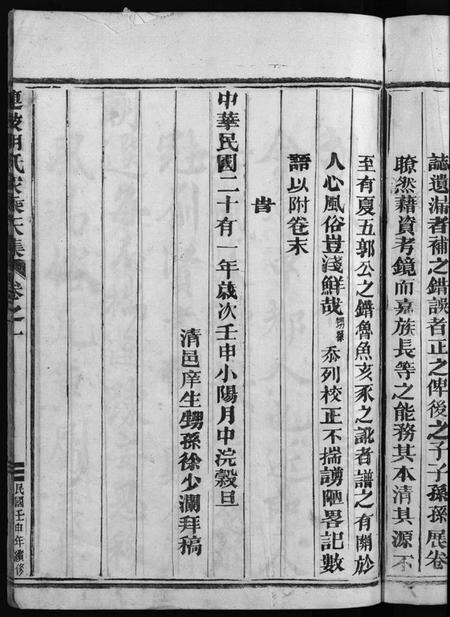 誌遺漏者補之錯誤者正之俾後之子子孫孫展卷
瞭然藉資考鏡而嘉族長等之能務其本清其源不
至有夏五郭公之錯魯魚亥豕之訛者譜之有關於
人心風俗豈淺鮮哉甥孫忝列校正不揣譾陋畧記數
語以附卷末
旹
中華民國二十有一年歲次壬申小陽月中浣穀旦
清邑庠生甥孫徐少瀾拜稿
胡氏家乘天集
卷之一
民國壬申年續修